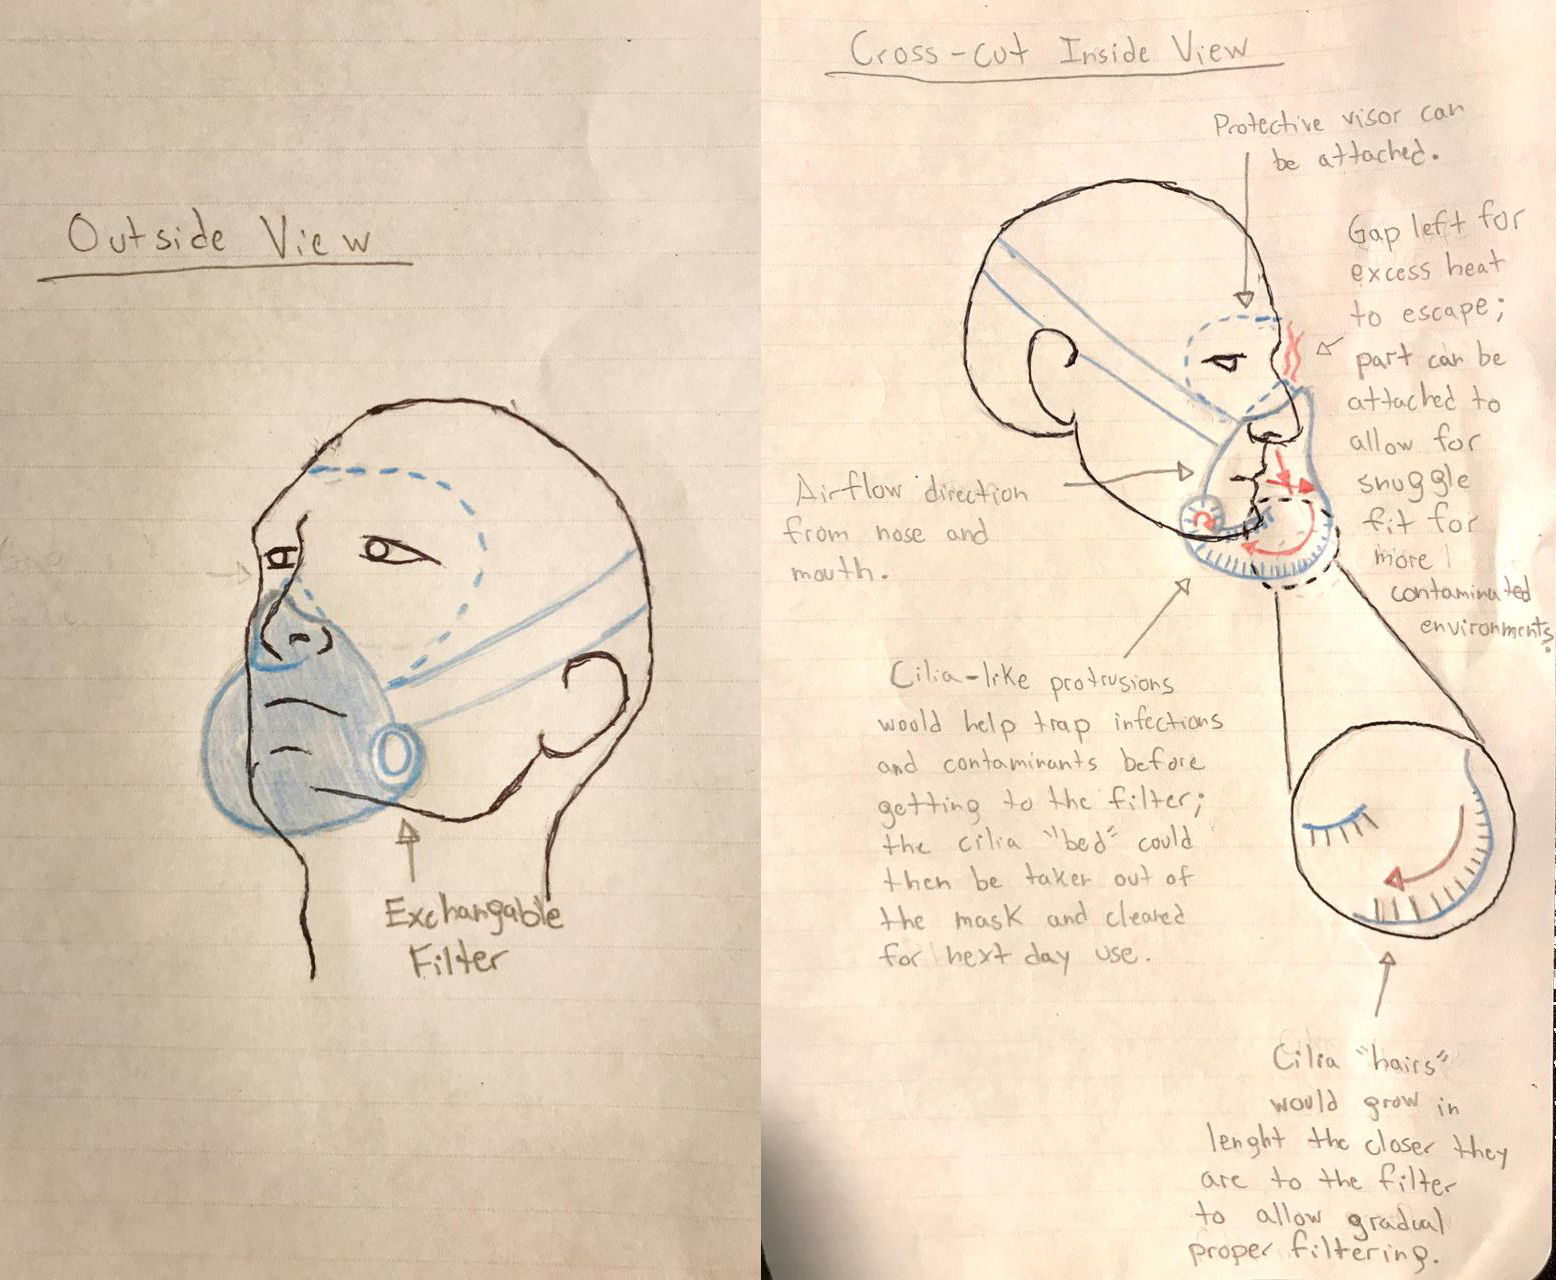 Outside View
Exchangable
Filter
Cross-cut Inside View
Protective visor can
be attached.
Gap left for
excess heat
to escape;
part can be
attached to
allow for
snuggle
fit for
more
contaminated
environments.
Airflow direction
from nose and
mouth.
Cilia-like protrusions
would help trap infections
and contaminants before
getting to the filter;
the cilia "bed" could
then be taken out of
the mask and cleared
for next day use.
Cilia "hairs"
would grow in
lenght the closer they
are to the filter
to allow gradual
proper filtering.